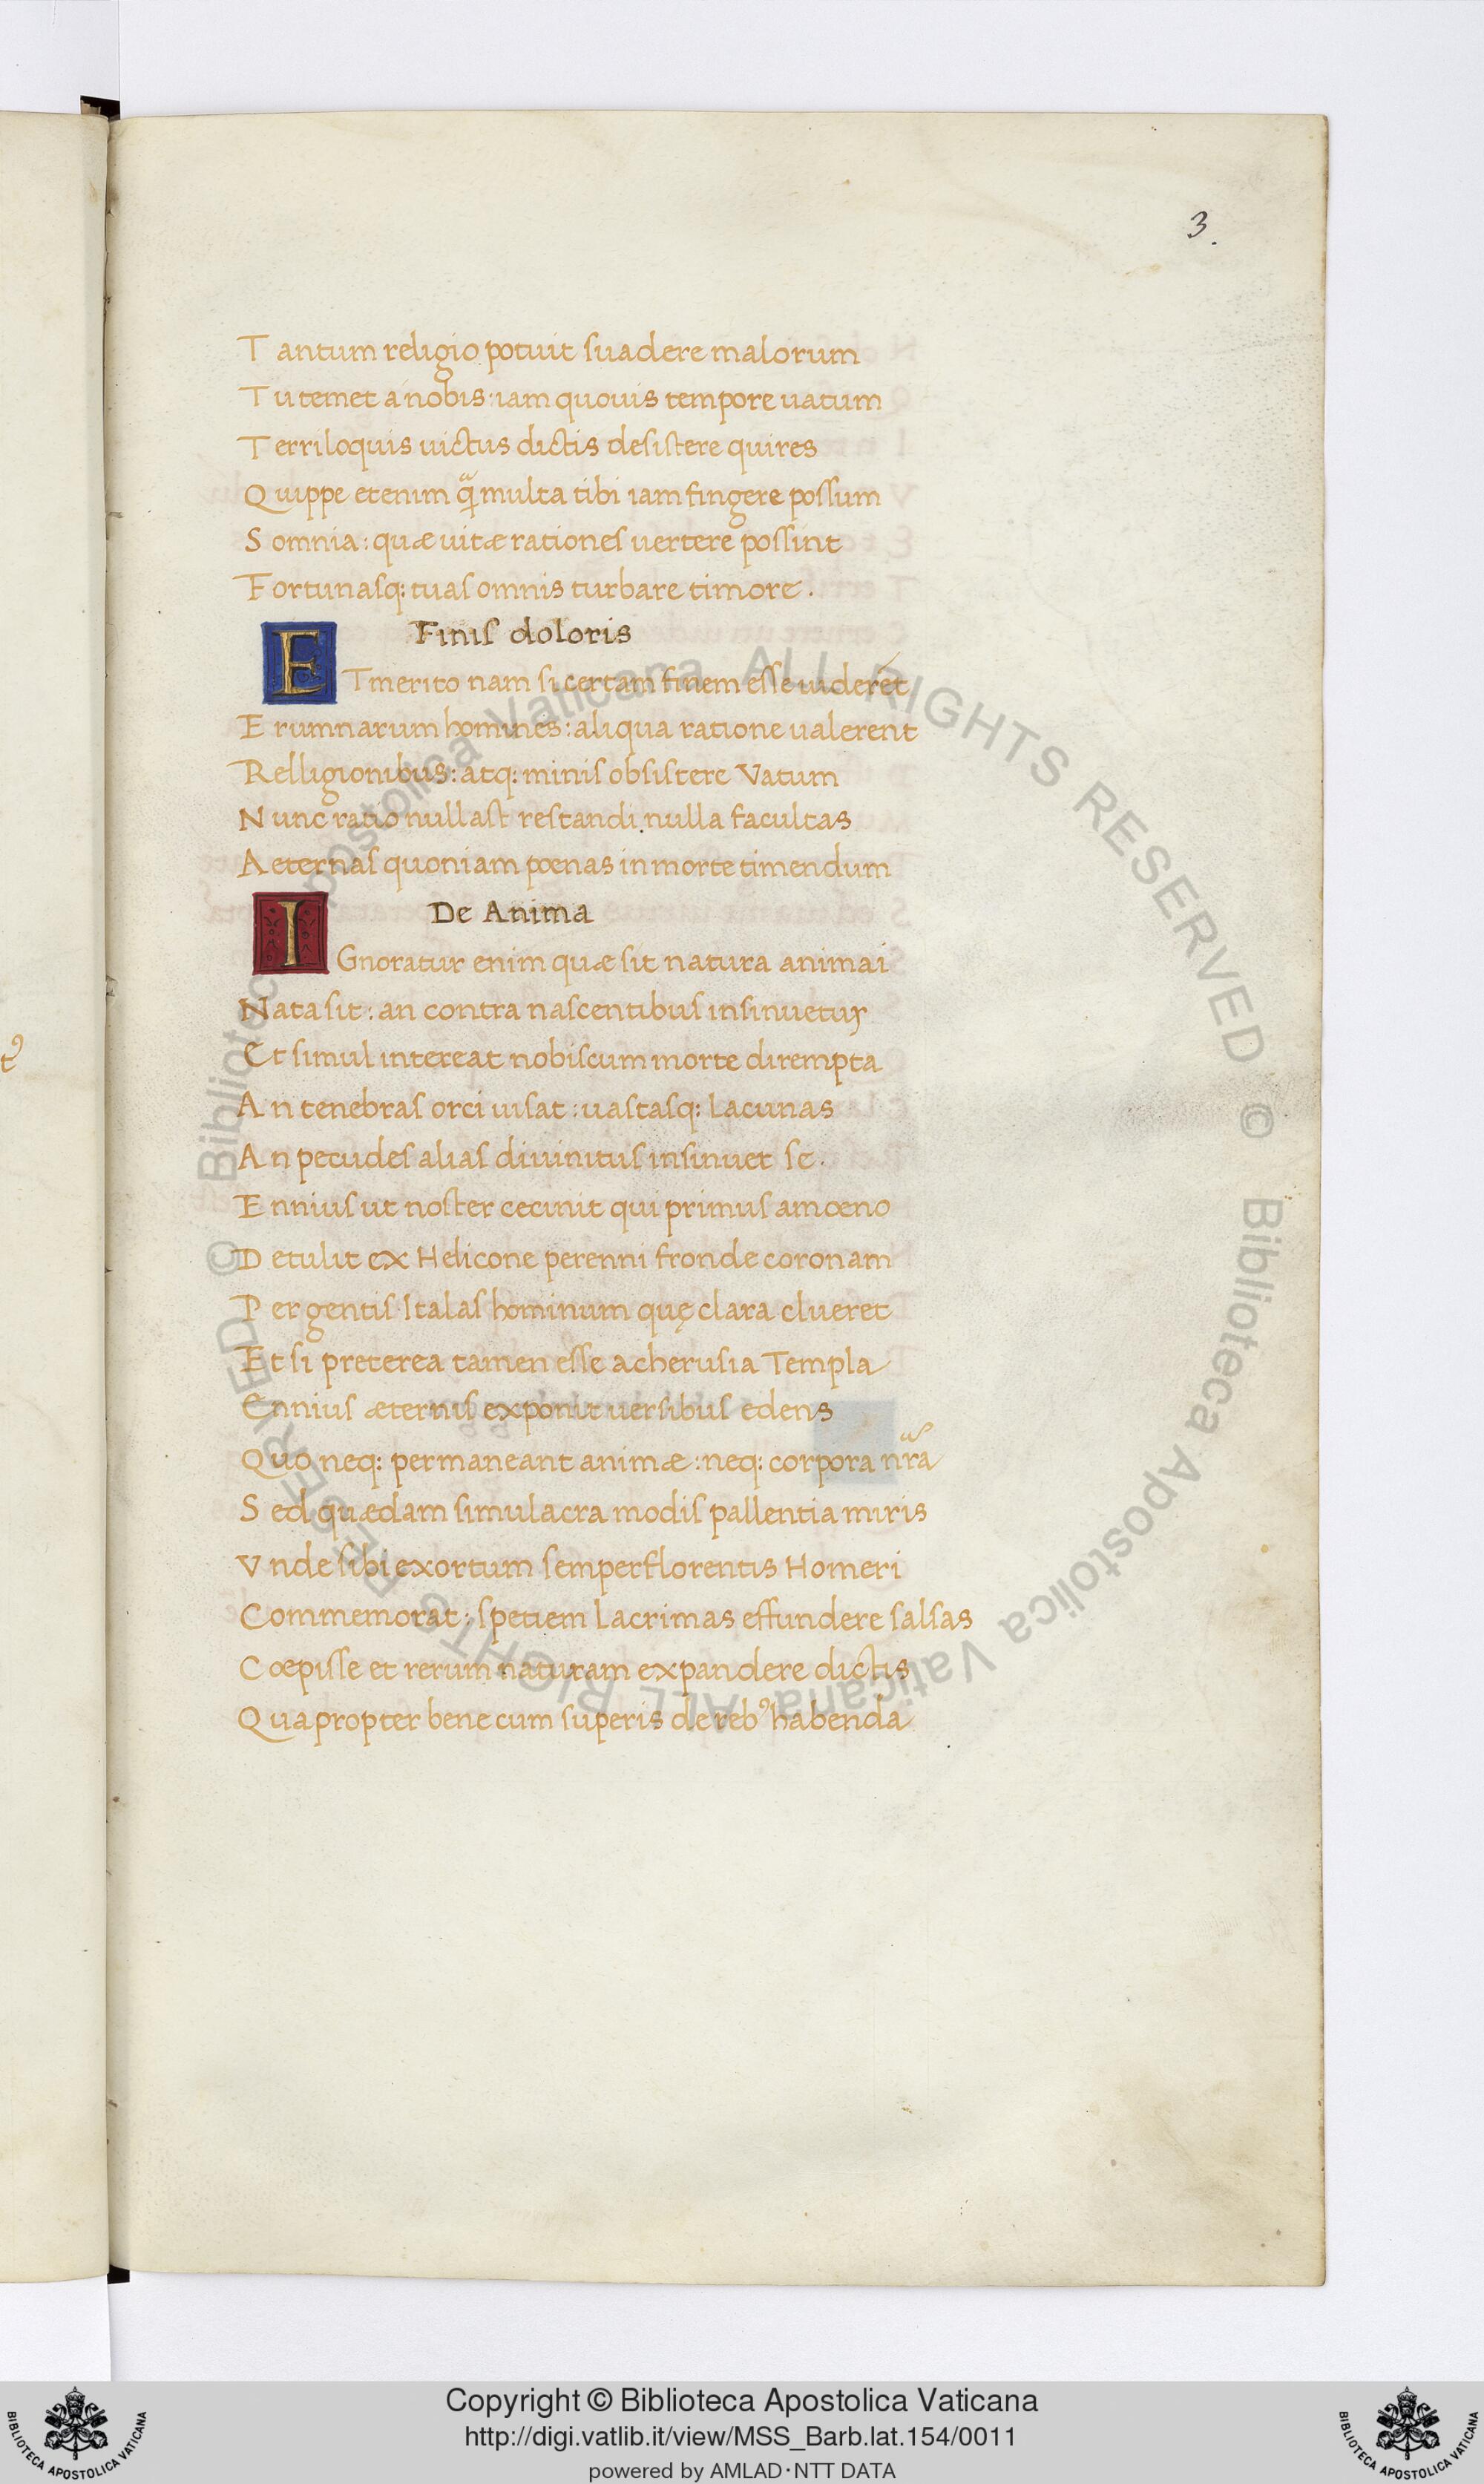 3.
Tantum religio potuit suadere malorum
Tutemet a nobis: iam quouis tempore uatum
Terriloquis uictus dictis desistere quires
Quippe etenim q̃ multa tibi iam fingere possum
Somnia: quæ uitæ rationes uertere possint
Fortunasq: tuas omnis turbare timore.
Finis doloris
ET merito nam si certam finem esse uiderēt
Erumnarum homines: aliqua ratione ualerent
Relligionibus: atq: minis obsistere Vatum
Nunc ratio nullast restandi nulla facultas
Aeternas quoniam poenas in morte timendum
De Anima
IGnoratur enim quæ sit natura animai
Nata sit: an contra nascentibus insinuetur
Et simul intereat nobiscum morte dirempta
An tenebras orci uisat: uastasq: lacunas
An pecudes alias diuinitus insinuet se.
Ennius ut noster cecinit qui primus amoeno
Detulit ex Helicone perenni fronde coronam
Per gentis Italas hominum quę clara clueret
Et si preterea tamen esse acherusia Templa
Ennius æternis exponit uersibus edens
Quo neq: permaneant animæ: neq: corpora nr̃a
Sed quædam simulacra modis pallentia miris
Vnde sibi exortum semper florentis Homeri
Commemorat: spetiem lacrimas effundere salsas
Coepisse et rerum naturam expandere dictis
Quapropter bene cum superis de rebꝰ habenda
Copyright © Biblioteca Apostolica Vaticana
http://digi.vatlib.it/view/MSS_Barb.lat.154/0011
powered by AMLAD·NTT DATA
BIBLIOTECA APOSTOLICA VATICANA
BIBLIOTECA APOSTOLICA VATICANA
© Biblioteca Apostolica Vaticana ALL RIGHTS RESERVED
© Biblioteca Apostolica Vaticana ALL RIGHTS RESERVED